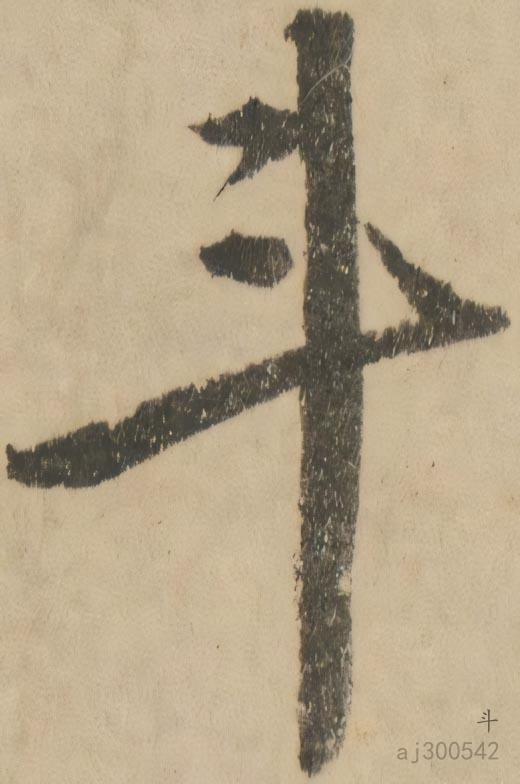 斗
斗
aj300542